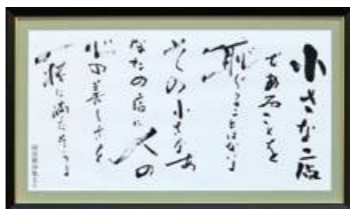 小さな店
であることを
恥じることはないよ
その小さなあ
なたの店に人の
心の美しさを
一杯に満たそうよ